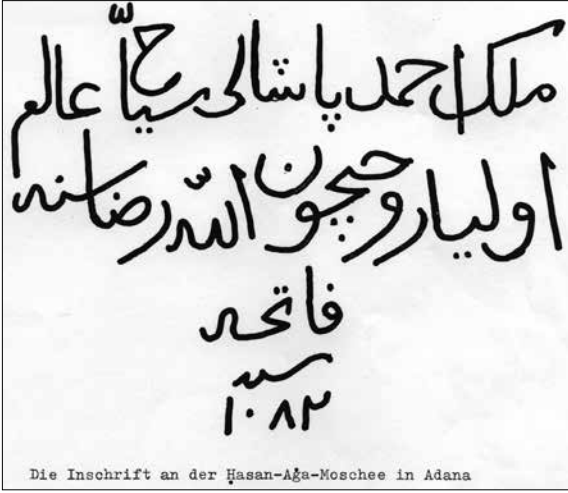 ملك احمد پاشالى سيّاح عالم
اوليا روحيچون اللّه رضاسنه
فاتحه
سنه
١٠٨٢
Die Inschrift an der Ḥasan-Aġa-Moschee in Adana